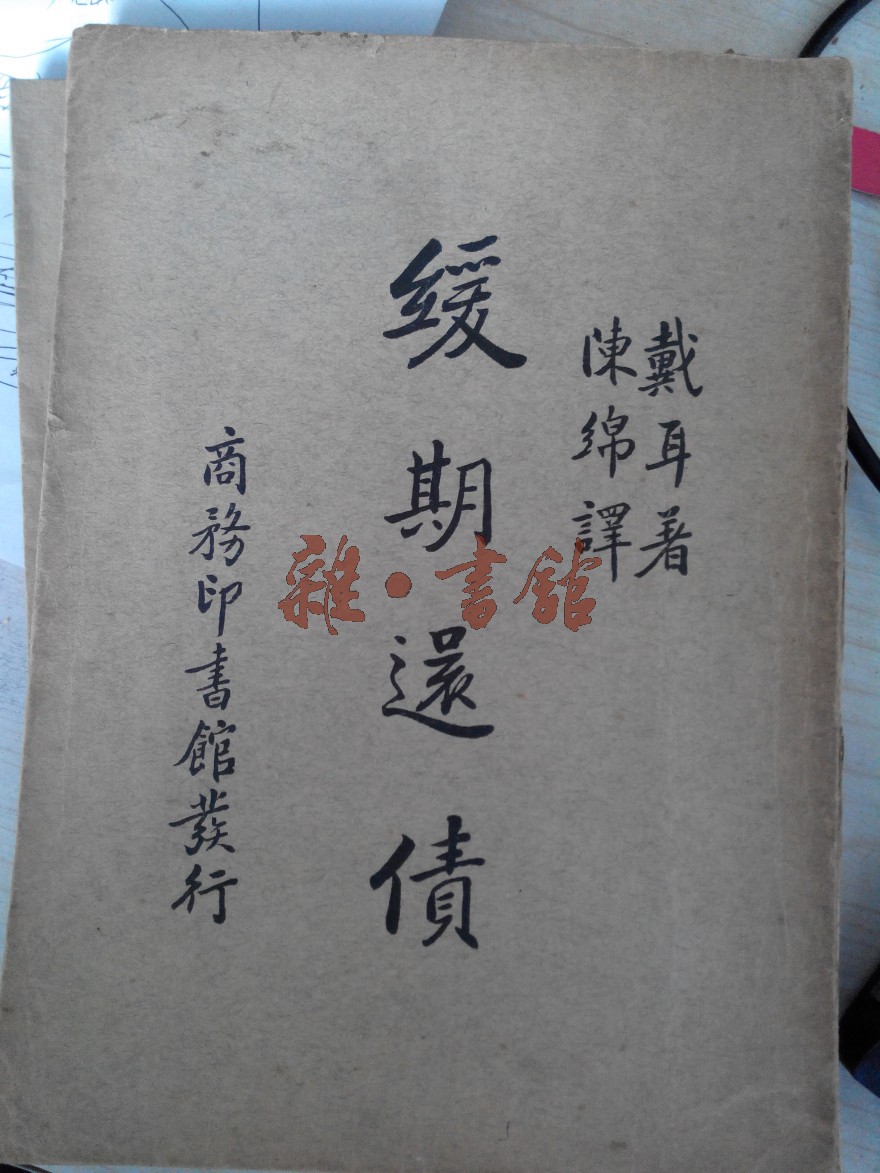 戴耳著
陳綿譯
緩期還債
商務印書館發行
雜·書館